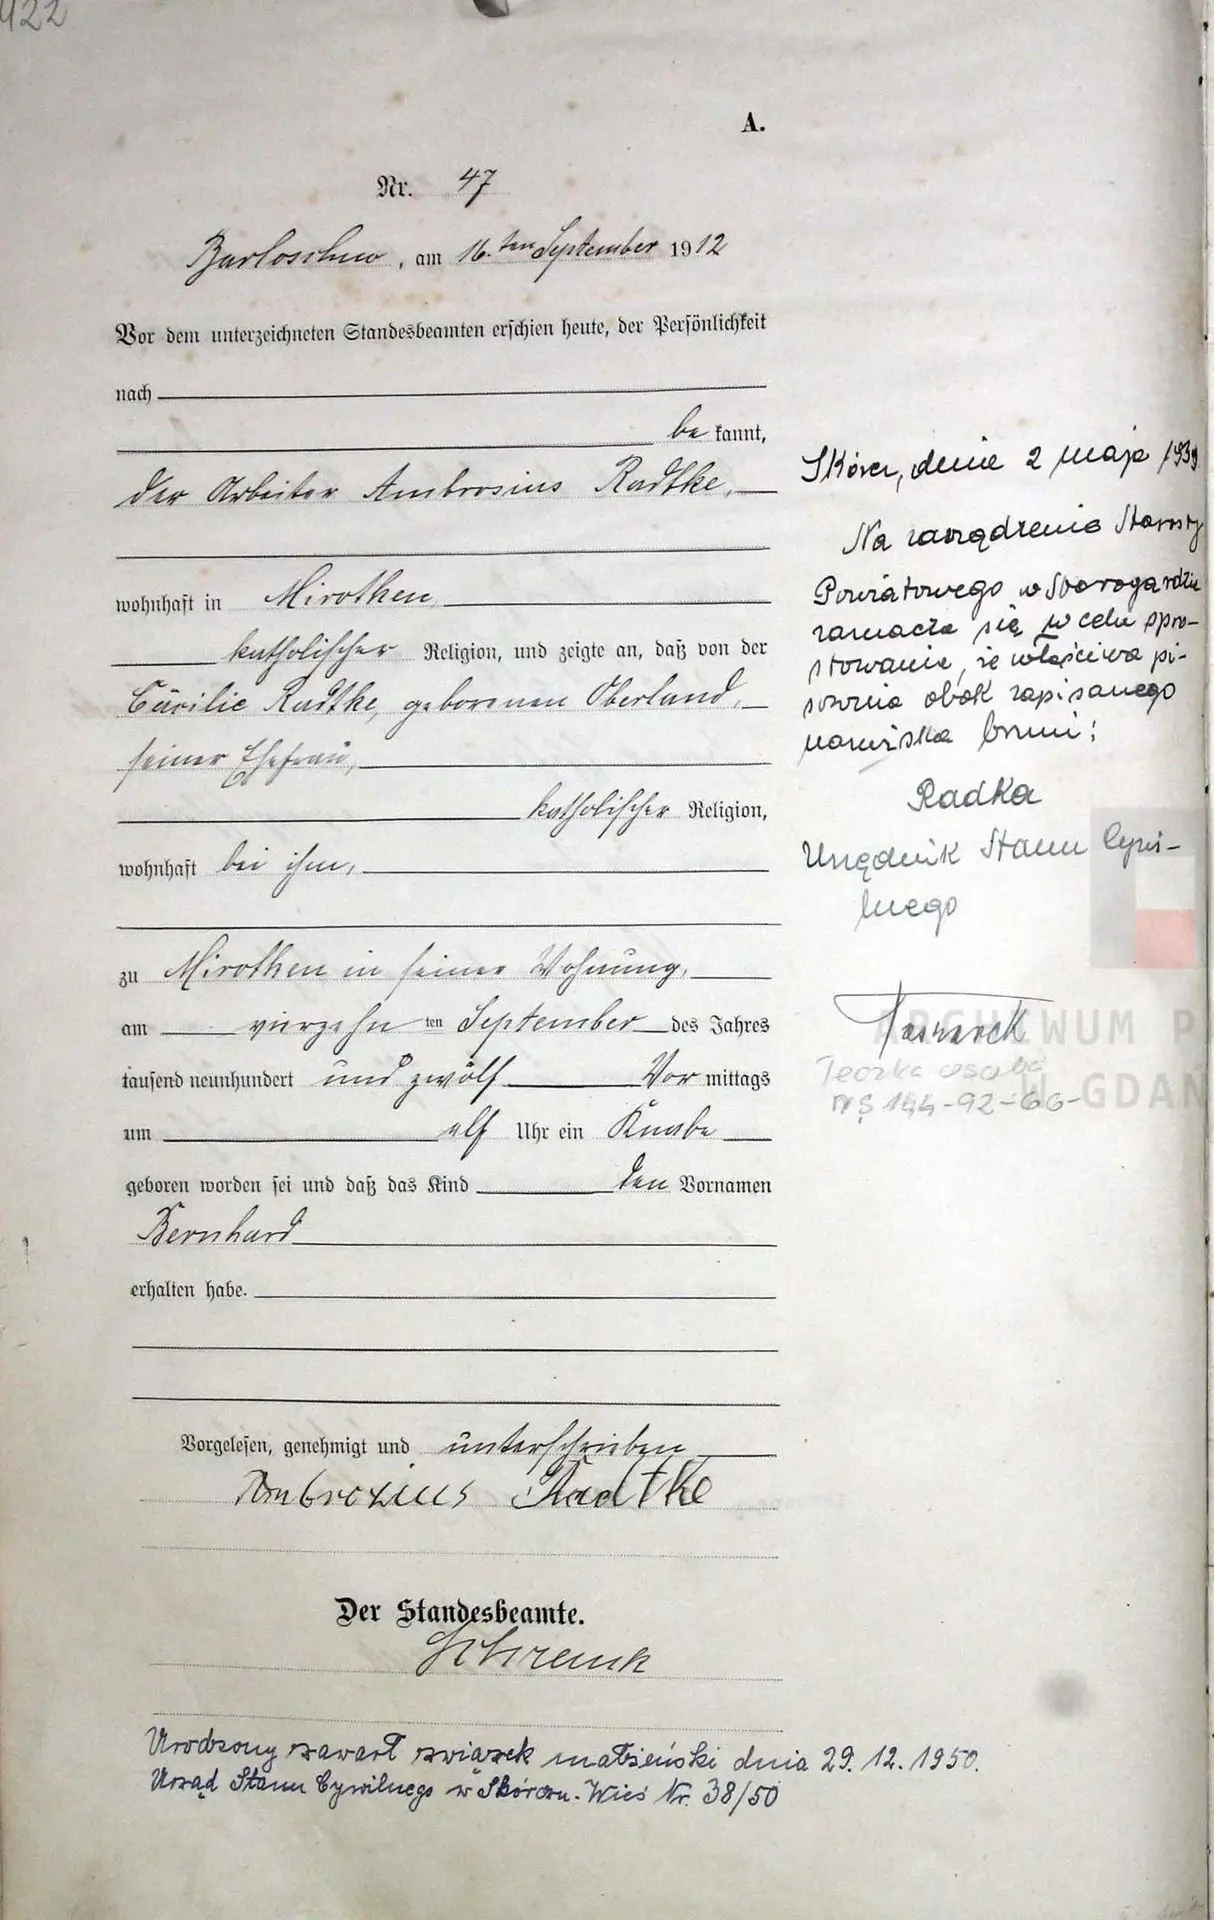 422
A.
Nr. 47
Barloschno, am 16. ten September 1912
Vor dem unterzeichneten Standesbeamten erschien heute, der Persönlichkeit
nach
be kannt,
der Arbeiter Ambrosius Radtke,
wohnhaft in Mirotken,
katholischer Religion, und zeigte an, daß von der
Cäcilie Radtke, geborenen Oberland,
seiner Ehefrau,
katholischer Religion,
wohnhaft bei ihm,
zu Mirotken in seiner Wohnung,
am vierzehn ten September des Jahres
tausend neunhundert und zwölf Vor mittags
um elf Uhr ein Knabe
geboren worden sei und daß das Kind den Vornamen
Bernhard
erhalten habe.
Vorgelesen, genehmigt und unterschrieben
Ambrozius Radtke
Der Standesbeamte.
Schrenk
Urodzony zawarł związek małżeński dnia 29.12.1950.
Urząd Stanu Cywilnego w Skórczu-Wieś Nr. 38/50
Skórcz, dnia 2 maja 1939
Na zarządzenie Starosty
Powiatowego w Starogardzie
zaznacza się w celu spro-
stowania, że właściwa pi-
sownia obok zapisanego
nazwiska brzmi:
Radka
Urzędnik Stanu Cywi-
lnego
Teczka osob
144-92-66-
ARCHIWUM P
W GDAŃ